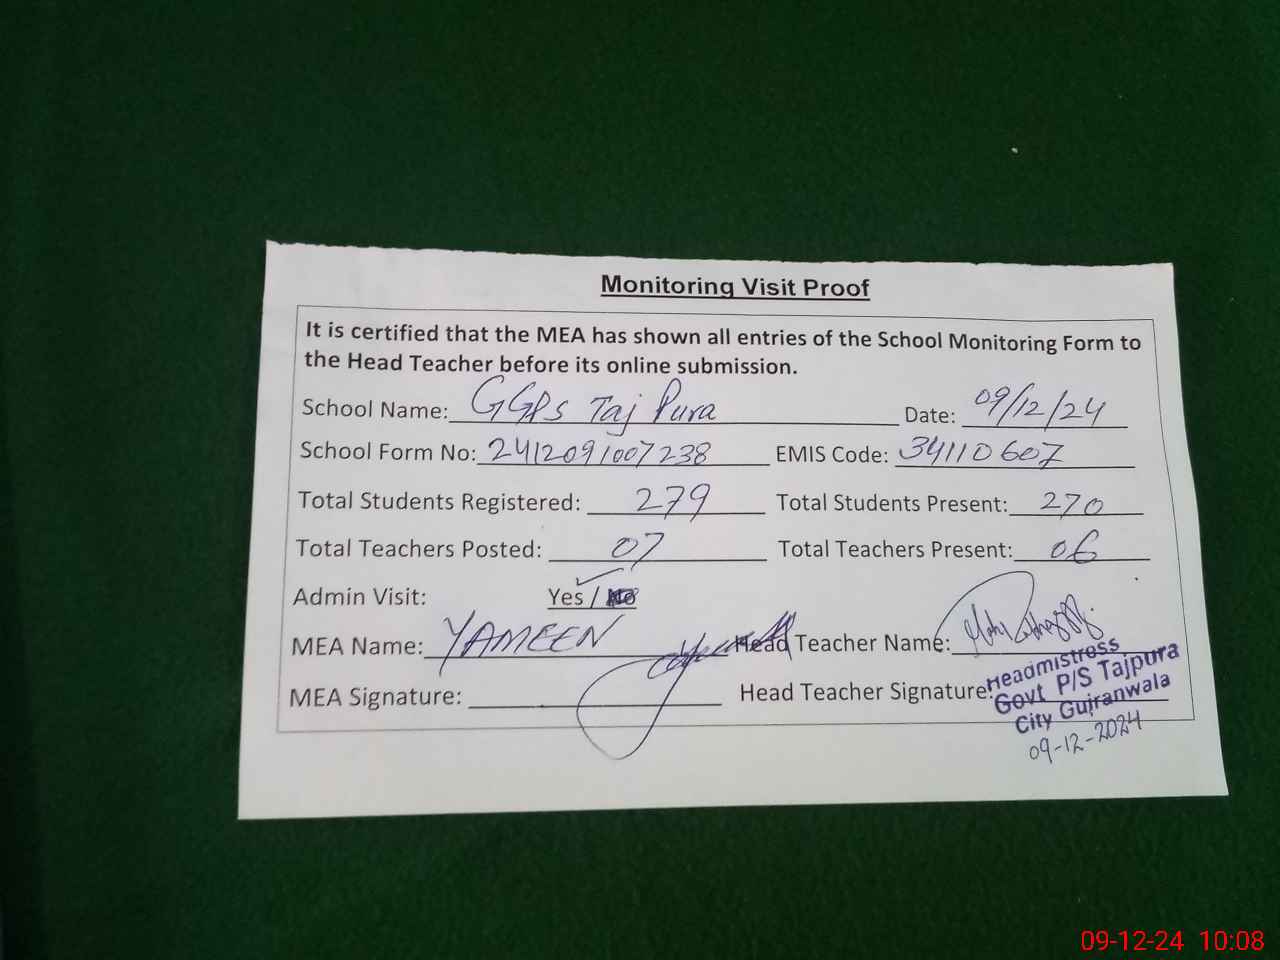 Monitoring Visit Proof
It is certified that the MEA has shown all entries of the School Monitoring Form to
the Head Teacher before its online submission.
School Name: GGPS Taj Pura Date: 09/12/24
School Form No: 2412091007238 EMIS Code: 34110607
Total Students Registered: 279 Total Students Present: 270
Total Teachers Posted: 07 Total Teachers Present: 06
Admin Visit: Yes / No
MEA Name: YAMEEN Head Teacher Name:
MEA Signature: Head Teacher Signature:
Headmistress
Govt P/S Tajpura
City Gujranwala
09-12-2024
09-12-24 10:08